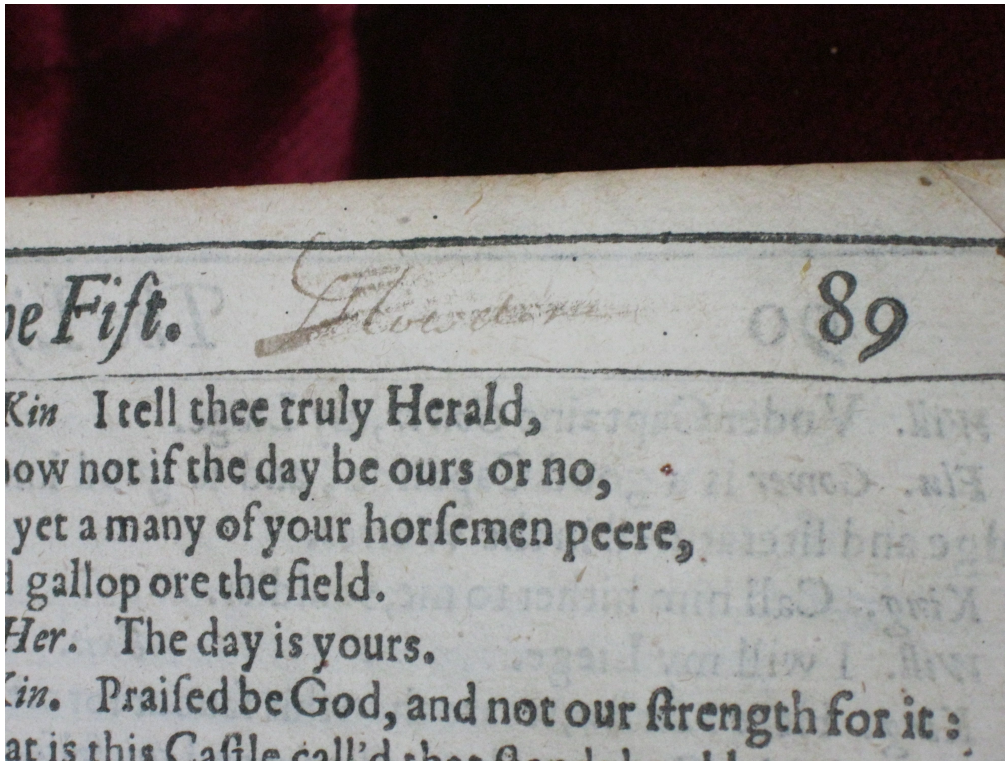 he Fift. 89
Kin I tell thee truly Herald,
now not if the day be ours or no,
yet a many of your horſemen peere,
d gallop ore the field.
Her. The day is yours.
Kin. Praiſed be God, and not our ſtrength for it :
at is this Caſtle call'd